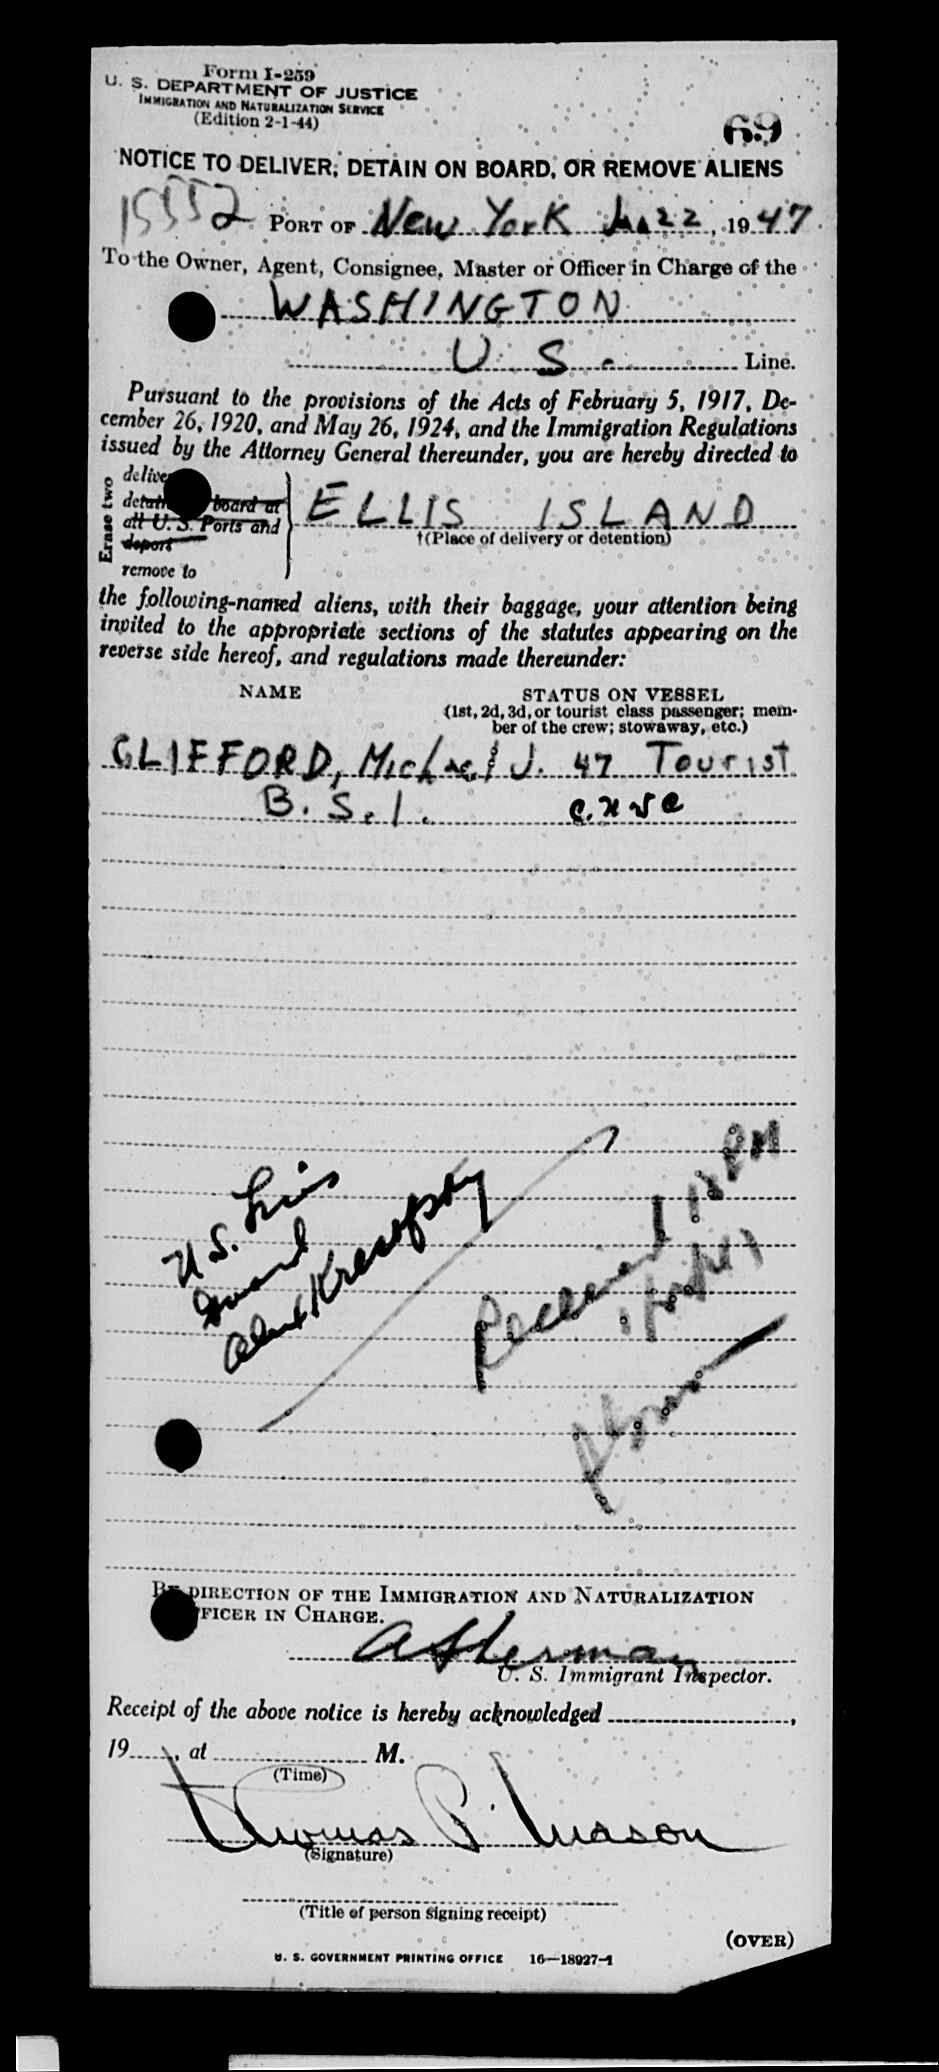 Form I-259
U. S. DEPARTMENT OF JUSTICE
IMMIGRATION AND NATURALIZATION SERVICE
(Edition 2-1-44)
69
NOTICE TO DELIVER, DETAIN ON BOARD, OR REMOVE ALIENS
15552
PORT OF New York 22, 1947
To the Owner, Agent, Consignee, Master or Officer in Charge of the
WASHINGTON
U S. Line.
Pursuant to the provisions of the Acts of February 5, 1917, De-
cember 26, 1920, and May 26, 1924, and the Immigration Regulations
issued by the Attorney General thereunder, you are hereby directed to
Erase two
delive
detain board at
all U. S. Ports and
deport
remove to
ELLIS ISLAND
†(Place of delivery or detention)
the following-named aliens, with their baggage, your attention being
invited to the appropriate sections of the statutes appearing on the
reverse side hereof, and regulations made thereunder:
NAME STATUS ON VESSEL
(1st, 2d, 3d, or tourist class passenger; mem-
ber of the crew; stowaway, etc.)
CLIFFORD, Michael J. 47 Tourist
B.S.I.
U.S. Lines
Guard
Received
BY DIRECTION OF THE IMMIGRATION AND NATURALIZATION
FFICER IN CHARGE.
U. S. Immigrant Inspector.
Receipt of the above notice is hereby acknowledged ,
19 , at M.
(Time)
Thomas P. Mason
(Signature)
(Title of person signing receipt)
(OVER)
U. S. GOVERNMENT PRINTING OFFICE 16—18927-1